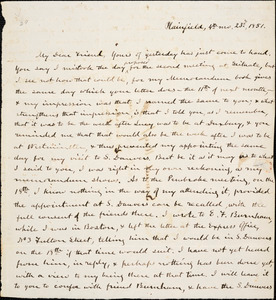 Plainfield, 4th mo. 23d, 1851.
My Dear Friend, Yours of yesterday has just come to hand.
You say I mistook the day for the second meeting at Scituate, but
I see not how that could be, for my Memorandum book gives
the same day which your letter does - the 11th of next month -
& my impression was that I named the same to you; & what
strengthens that impression, is that I told you, as I was
that it was to be the week after I was to be at , & you
reminded me that that would also be the week after I was to be in
Westminster, & thus prevented my appointing the same
day for my visit to S. Danvers. But be it as it may as to what
I said to you, I was right in my own reckoning & in my
memorandum above. As to the Pembroke meeting, on the
18th I know nothing in the way of my attending it, provided
the appointment at S. Danvers can be recalled, with the
full consent of the friends there, I wrote to E. F. Burnham,
while I was in Boston, & left the letter at the Express Office,
No 3 Fulton Street, telling him that I would be in S. Danvers
on the 18th if that time would suit. I have not yet heard
from him, in reply, & perhaps nothing has been done yet,
with a view to my being there at that time. I will leave it
to you to confer with friend Burnham, & have the S. Danvers